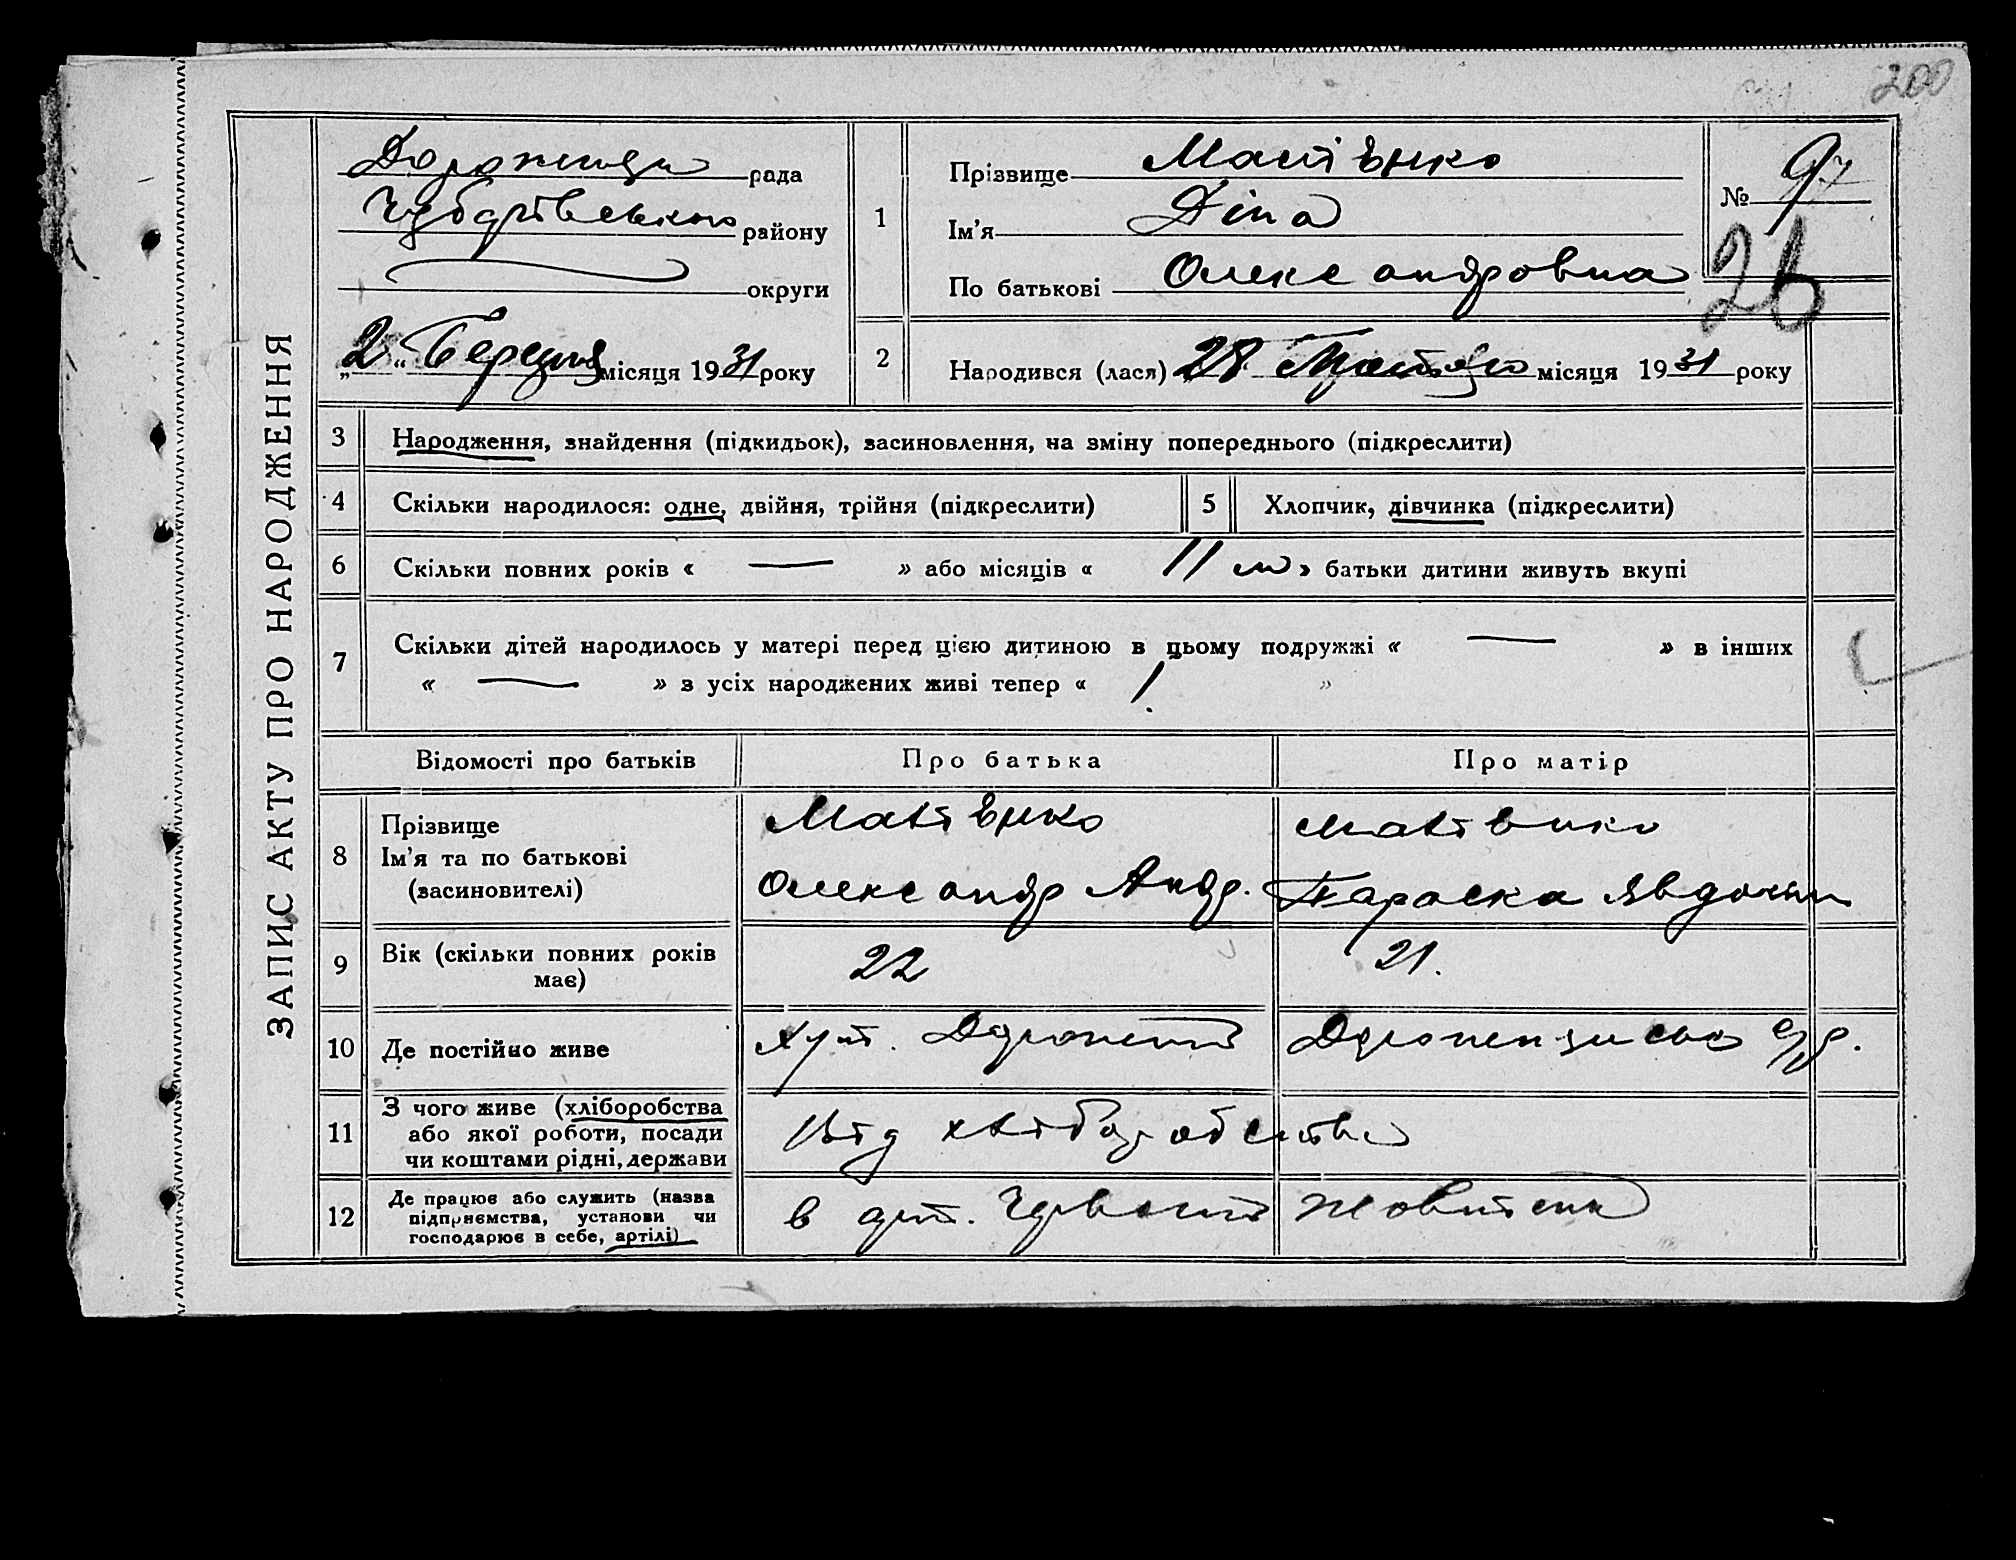 200
ЗАПИС АКТУ ПРО НАРОДЖЕННЯ
рада
Чубарівського району
округи
„2“ Березня місяця 1931 року
1
Прізвище Матвієнко
Ім'я Діна
По батькові Олександровна
№ 97
26
2
Народився (лася) 28 Лютого місяця 1931 року
3 Народження, знайдення (підкидьок), засиновлення, на зміну попереднього (підкреслити)
4 Скільки народилося: одне, двійня, трійня (підкреслити) 5 Хлопчик, дівчинка (підкреслити)
6 Скільки повних років « — » або місяців « 11 м » батьки дитини живуть вкупі
7 Скільки дітей народилось у матері перед цією дитиною в цьому подружжі « — » в інших
« — » з усіх народжених живі тепер « 1. »
Відомості про батьків Про батька Про матір
8 Прізвище
Ім'я та по батькові
(засиновителі)
Олександр Андр.
Параска
9 Вік (скільки повних років
має)
22
21.
10 Де постійно живе
хут.
11 З чого живе (хліборобства
або якої роботи, посади
чи коштами рідні, держави
Від хліборобства
12 Де працює або служить (назва
підприємства, установи чи
господарює в себе, артілі)
в арт. Червоний Жовтень